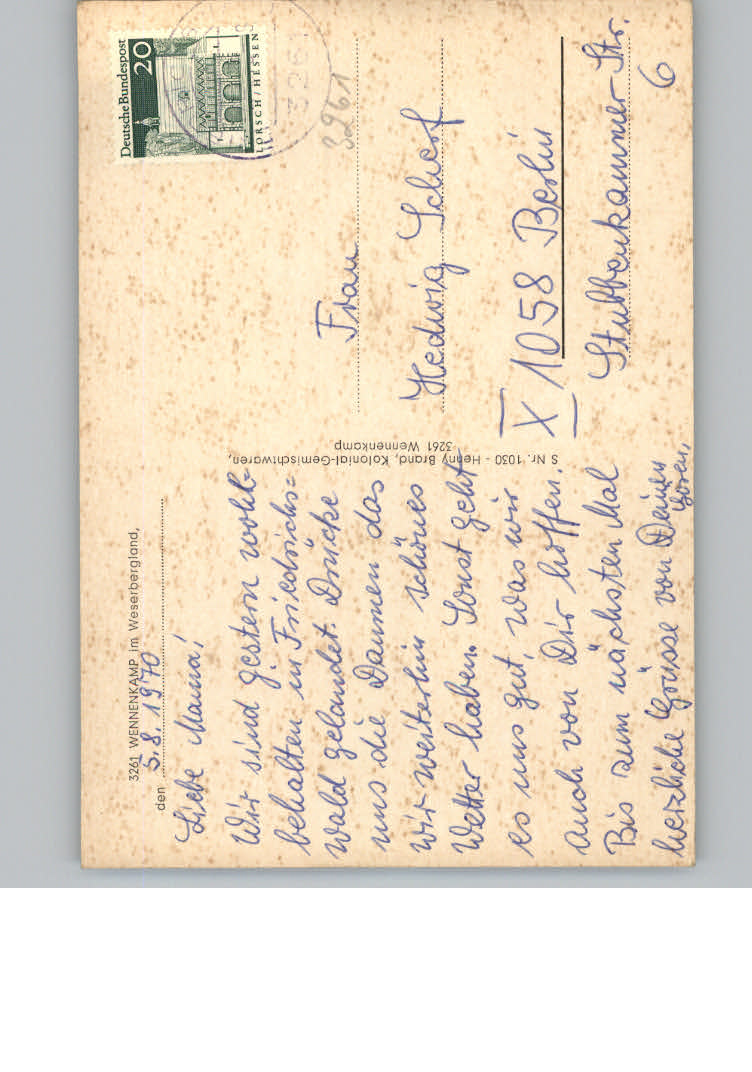 3261 WENNENKAMP im Weserbergland,
den 5.8.1970
Liebe Mama!
Wir sind gestern wohl-
behalten in Friedrichs-
wald gelandet. Drücke
uns die Daumen das
wir weiterhin schönes
Wetter haben. Sonst geht
es uns gut, was wir
auch von Dir hoffen.
Bis zum nächsten Mal
herzliche Grüsse von Deinen
Gören.
S Nr. 1030 - Henny Brand, Kolonial-Gemischtwaren,
3261 Wennenkamp
Deutsche Bundespost
20
LORSCH/HESSEN
3261
3261
Frau
Hedwig Scherf
X 1058 Berlin
Stubbenkammer Str.
6